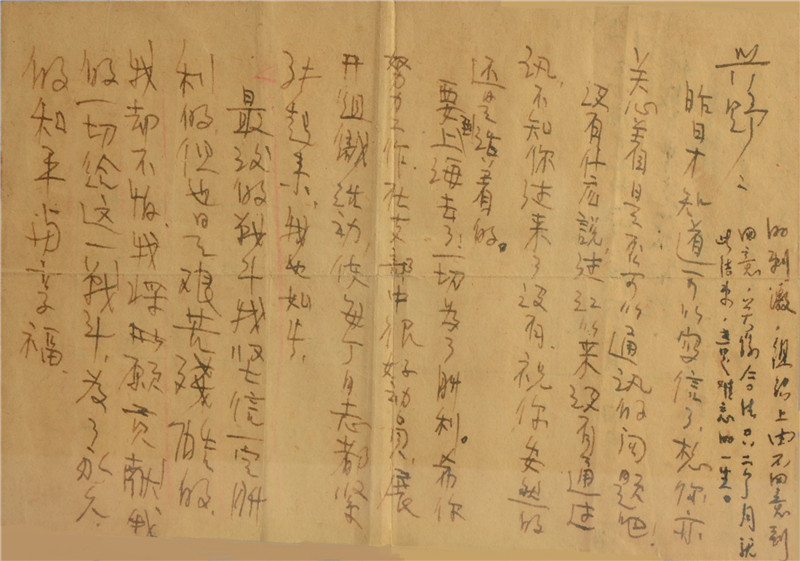 野：
昨日才知道可以写信了，想你亦
关心着是否可以通讯的问题吧！
没有什広說，过江以来没有通过
讯，不知你过来了没有，祝你安然的
还是活着的。
要到上海去了！一切为了胜利。希你
努力工作，在支部中很好动员，展
开组 活动，使每个同志都坚
强起来，我也如此，
最后的战斗我坚信一定胜
利的，但也是艰苦残酷的，
我却不怕，我深 愿贡献我
的一切给这一战斗，为了永久
的和平 幸福。
的刺激，组织上也不同意到
同意， 合法只二个月就
此结束，真是难忘的一生。